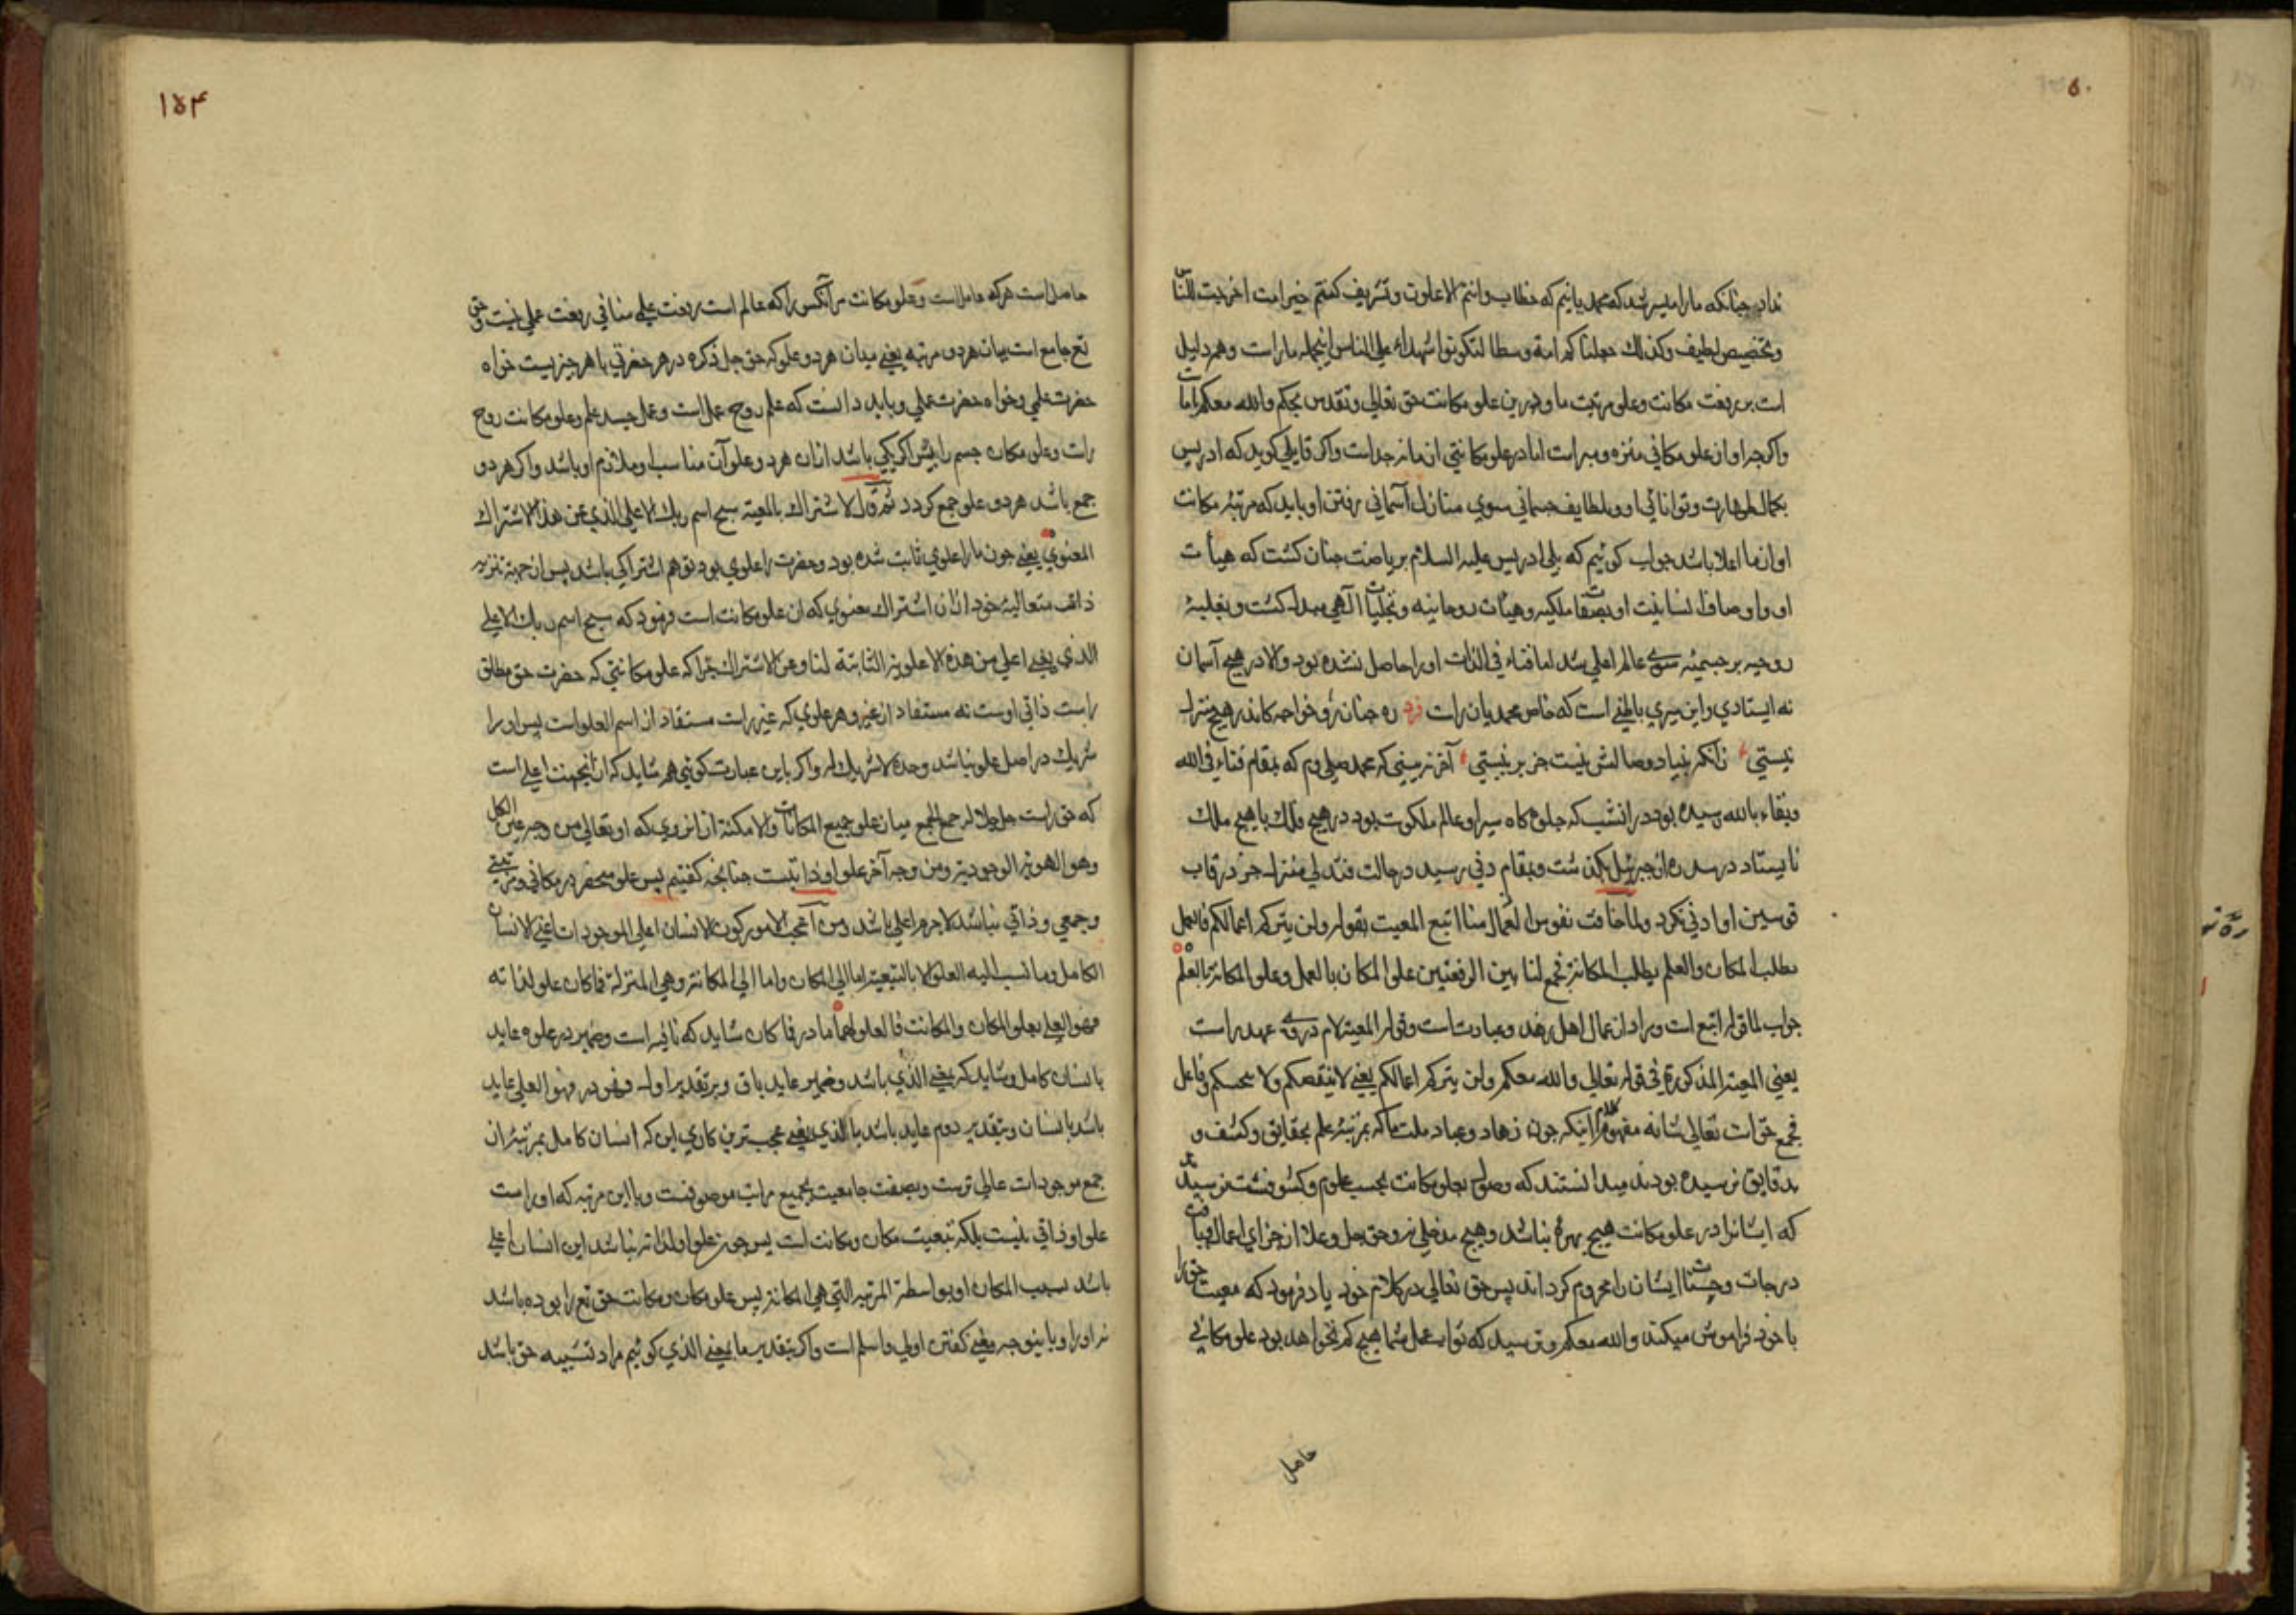 نداد چنانکه مارا میسر شد که محمدیانیم که خطاب وانتم الاعلون وتشریف کنتم خیر امت اخرجت للناس
وتخصیص لطیف وکذلك جعلناکم امة وسطا لتکونوا شهداء علی الناس اینجمله ماراست وهم دلیل
است بر رفعت مکانت وعلو مرتبت ما ودرین علو مکانت حق تعالی وتقدس بحکم والله معکم با ما است
واکرچه او از علو مکانی منزه ومبراست اما در علو مکانتی از ما نه جداست واکر قایلی کوید که ادریس
بکمال طهارت وتوانائی او وبلطایف جسمانی سوی منازل آسمانی رفتن او باید که مرتبۀ مکانت
او از ما اعلا باشد جواب کوئیم که بلی ادریس علیه السلام بریاضت چنان کشت که هیأت
او واوصاف انسانیت او بصفات ملکیه وهیأت روحانیه وتجلیات الهی مبدل کشت وبغلبۀ
روحیه بر جسمیه سوی عالم اعلی شد اما فناء فی الذات اورا حاصل نشده بود والا در هیچ آسمان
نه ایستادی واین سیری باطنی است که خاص محمدیان راست فرد ره چنان رو خواجه کاندر هیچ منزل
نیستی زانکه بنیاد وصالش نیست جز بر نیستی آخر نه بینی که محمد صلی وم که بمقام فناء فی الله
وبقاء بالله رسیده بود در آنشب که جلوه کاه سیر او عالم ملکوت بود در هیچ فلك با هیچ ملك
نایستاد در سدره از جبرئیل بکذشت وبمقام دنی رسید ودر حالت فتدلی منزل جز در قاب
قوسین او ادنی نکرد ولما خافت نفوس العمال منا اتبع المعیت بقوله ولن یترکم اعمالکم فالعمل
یطلب المکان والعلم یطلب المکانة فجمع لنا بین الرفعتین علو المکان بالعمل وعلو المکانة بالعلم
جواب لما قوله اتبع است ومراد از عمال اهل زهد وعبادت است وقوله المعیة لام درو عهد راست
یعنی المعیة المذکورة فی قوله تعالی والله معکم ولن یترکم اعمالکم یعنی لاینقصکم ولا وفاعل
فجمع حق است تعالی شانه مفهوم کلام آنکه چون زهاد وعباد ملت ما که بمرتبۀ علم بحقایق وکشف و
بدقایق نرسیده بودند میدانستند که وصول بعلو مکانت بحسب علوم وکشوفست ترسیدند
که ایشانرا در علو مکانت هیچ بهرۀ نباشد وهیچ مدخلی نه وحق جل وعلا از جزای اعمال ویافت
درجات وجنات ایشان را محروم کرداند پس حق تعالی در کلام خود یاد فرمود که معیت حق را
با خود فراموش میکنند والله معکم وترسید که ثواب عمل شما هیچ کم نخواهد بود علو مکانی
حاصل
۱۵۴
حاصل است هر که عامل است وعلو مکانت مر آنکس را که عالم است رفعت علمی منافی رفعت عملی نیست وحق
تع جامع است میان هر دو مرتبه یعنی میدان هر دو علو که حق جل ذکره در هر حضرتی با هر چیزیست خواه
حضرت علمی وخواه حضرت عملی وباید دانست که علم روح عمل است وعمل جسد علم وعلو مکانت روح
راست وعلو مکان جسم را پس اکر یکی باشد ازان هر دو علو آن مناسب او وملازم او باشد واکر هر دو
جمع باشد هر دو علو جمع کردد ثم قال للاشتراك بالمعیة سبح اسم ربك الاعلی الذی عن هذا الاشتراك
المعنوی یعنی چون مارا علوی ثابت شده بود وحضرت را علوی بود توهم اشتراکی باشد پس از جهة تنزیه
ذات متعالیۀ خود ازان اشتراك معنوی که ان علو مکانت است فرمود که سبح اسم ربك الاعلی
الذی یعنی اعلی من هذه الاعلویة الثابتة لنا وعن الاشتراك چرا که علو مکانتی که حضرت حق مطلق
راست ذاتی اوست نه مستفاد از غیر وهر علوی که غیر راست مستفاد از اسم العلو است پس اورا
شریك در اصل علو نباشد وحده لا شریك له واکر باین عبارت کوئی هم شاید که از آنجهت اعلی است
که حق راست جل جلاله جمع الجمع میان علو جمیع المکانات والامکنة از انروی که او تعالی من وجه عین الکل
وهو الهویة الوجودیة ومن وجه آخر علو او ذاتیست چنانچه کفتیم پس علو منحصر در مکانی ورتبتی
وجمعی وذاتی نباشد لاجرم اعلی باشد ومن اعجب الامور کون الانسان اعلی الموجودات اعنی الانسان
الکامل وما نسب الیه العلو الا بالتبعیة اما الی المکان واما الی المکانة وهی المنزلة فما کان علوه لذاته
فهو العلی بعلو المکان والمکانت فالعلو لهما ما در فما کان شاید که نافیه است وضمیر در علوه عاید
بانسان کامل وشاید که بمعنی الذی باشد وضمیر عاید باو وبر تقدیر اول فهو در فهو العلی عاید
باشد بانسان وبتقدیر دوم عاید باشد بالذی یعنی عجبترین کاری این که انسان کامل بمرتبه از
جمع موجودات عالی ترست وبصفت جامعیت بجمیع مراتب موصوفست وبا این مرتبه که اوراست
علو او ذاتی نیست بلکه تبعیت مکان ومکانت است پس چون علو او لذاته نباشد این انسان اعلی
باشد بسبب المکان او بواسطة المرتبة التی هی المکانة پس علو مکان ومکانت حق تع را بوده باشد
نه اورا وباینوجه معنی کفتن اولی واسلم است واکر بتقدیر ما بمعنی الذی کوئیم مراد تشبیه حق باشد